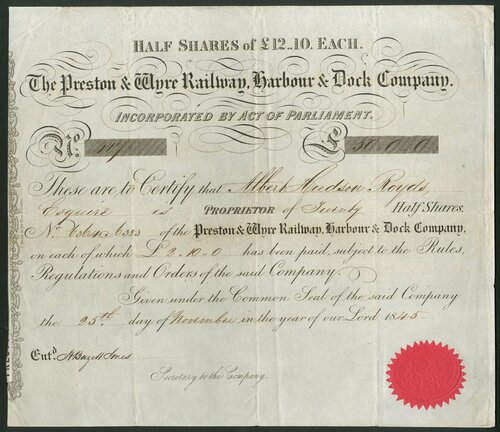 HALF SHARES of £12..10. EACH.
The Preston & Wyre Railway, Harbour & Dock Company.
INCORPORATED BY ACT OF PARLIAMENT.
No. £ 50.0.0
These are to Certify that Albert Hudson Royds
Esquire is PROPRIETOR of Twenty Half-Shares.
No. of the Preston & Wyre Railway, Harbour & Dock Company,
on each of which £2.10.0 has been paid, subject to the Rules,
Regulations and Orders of the said Company.
Given under the Common Seal of the said Company
the 25th. day of November in the year of our Lord 1845
Entd.
Secretary to the Company.